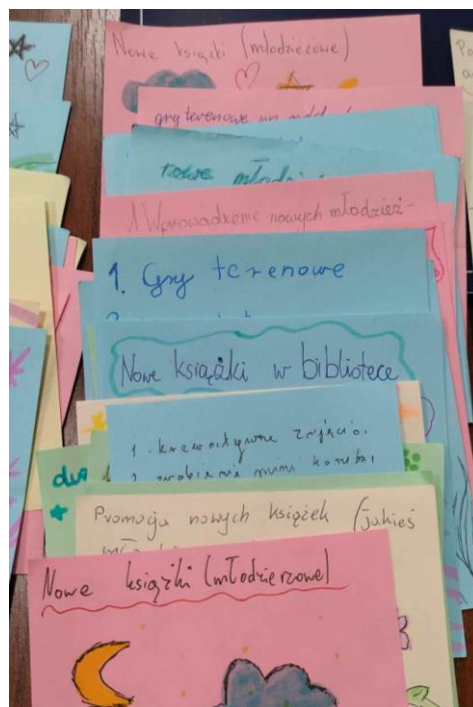 Nowe książki (młodzieżowe)
gry terenowe
nowe
1. Wprowadzenie nowych młodzież-
1. Gry terenowe
Nowe książki w bibliotece
1. kreatywne zajęcia.
2. zrobienie mini
Promocja nowych książek (jakieś
Nowe książki (młodzierzowe)